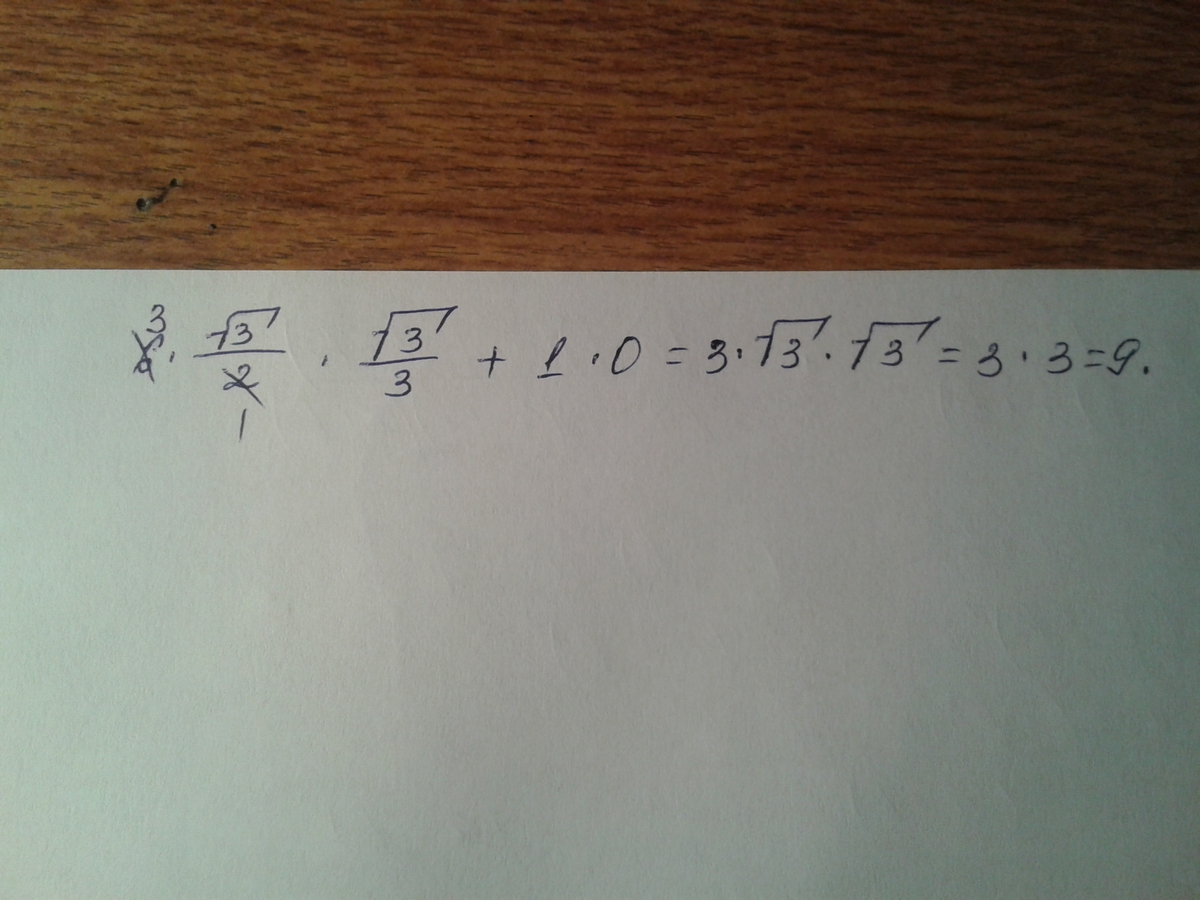 6̸³ · √3/2̸₁ · √3/3 + 1 · 0 = 3 · √3 · √3 = 3 · 3 = 9.